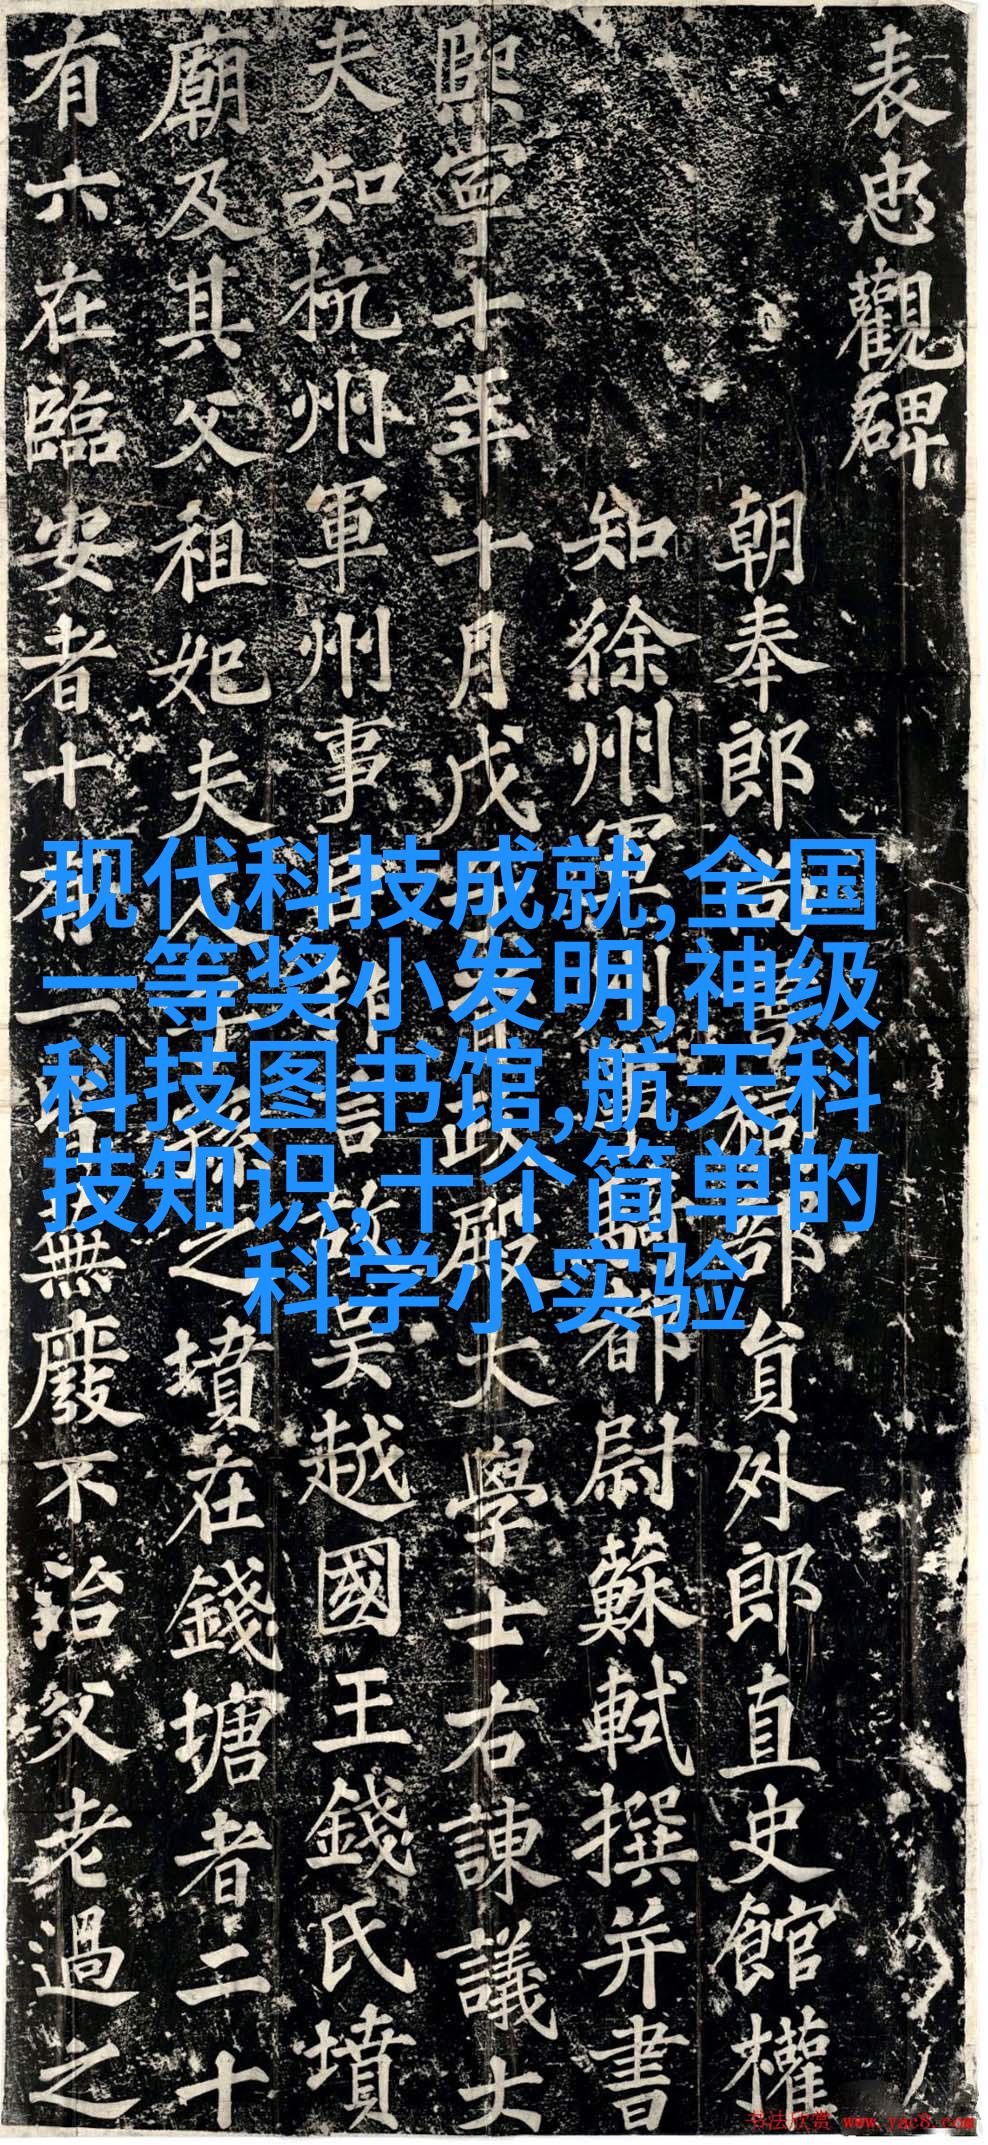 表忠觀碑
朝奉郎尚
部員外郎直史館權
知徐州軍州
騎都尉蘇軾撰并書
熙寧十年十月戊
政殿大學士右諫議大
夫知杭州軍州事
言故吳越國王錢氏墳
廟及其父祖妃夫人子孫之墳在錢塘者二十
有六在臨安者十有一皆蕪廢不治父老過之
现代科技成就,全国
一等奖小发明,神级
科技图书馆,航天科
技知识,十个简单的
科学小实验
书法欣赏 www.yac8.com